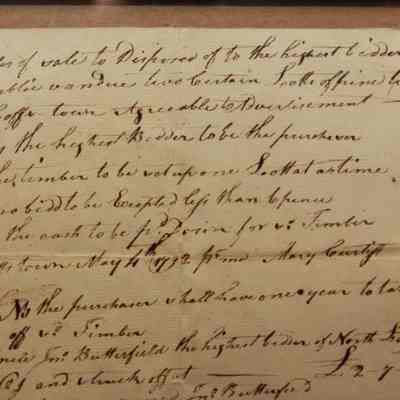 of sale to Disposed of to the highest bidder
vandue two Certain Lotts of pine
town Agreeable to Advertisement
the highest Bidder to be the purcheser
timber to be set up one Lott at a time
no bidd to be Excepted less than 6 pence
the cash to be pd Down for sd Timber
town May 4th 1792 pr me Mary Curtiss
NB the purchaser shall have one year to
off sd Timber
Jnº Butterfield the highest bidder of North
and struck off at £2-7
Jnº Butterfield